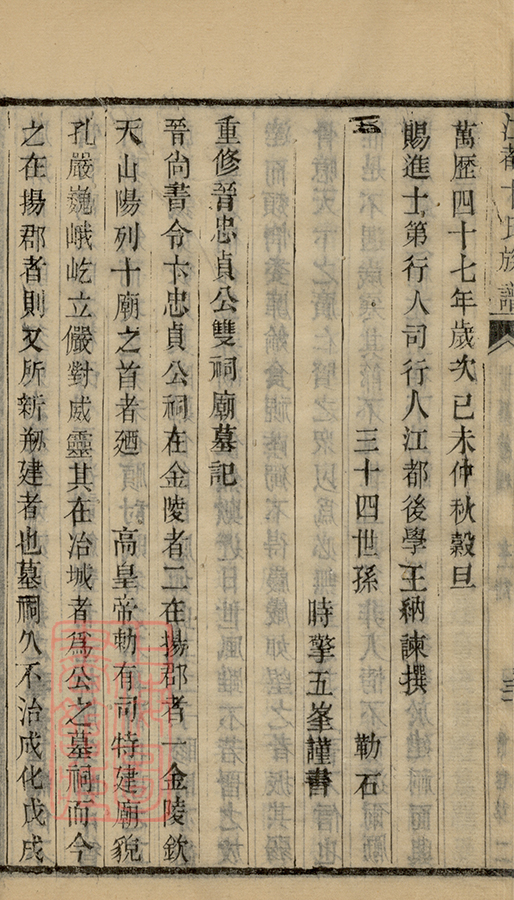 江都卞氏族譜
萬歷四十七年歲次己未仲秋穀旦
賜進士第行人司行人江都後學王納諫撰
三十四世孫 勒石
時擎五峯謹書
重修晉忠貞公雙祠廟墓記
晉尙書令卞忠貞公祠在金陵者二在揚郡者一金陵欽
天山陽列十廟之首者廼 高皇帝勅有司特建廟貌
孔嚴巍峨屹立儼對威靈其在冶城者為公之墓祠而今
之在揚郡者則又所新刱建者也墓祠久不治成化戊戌